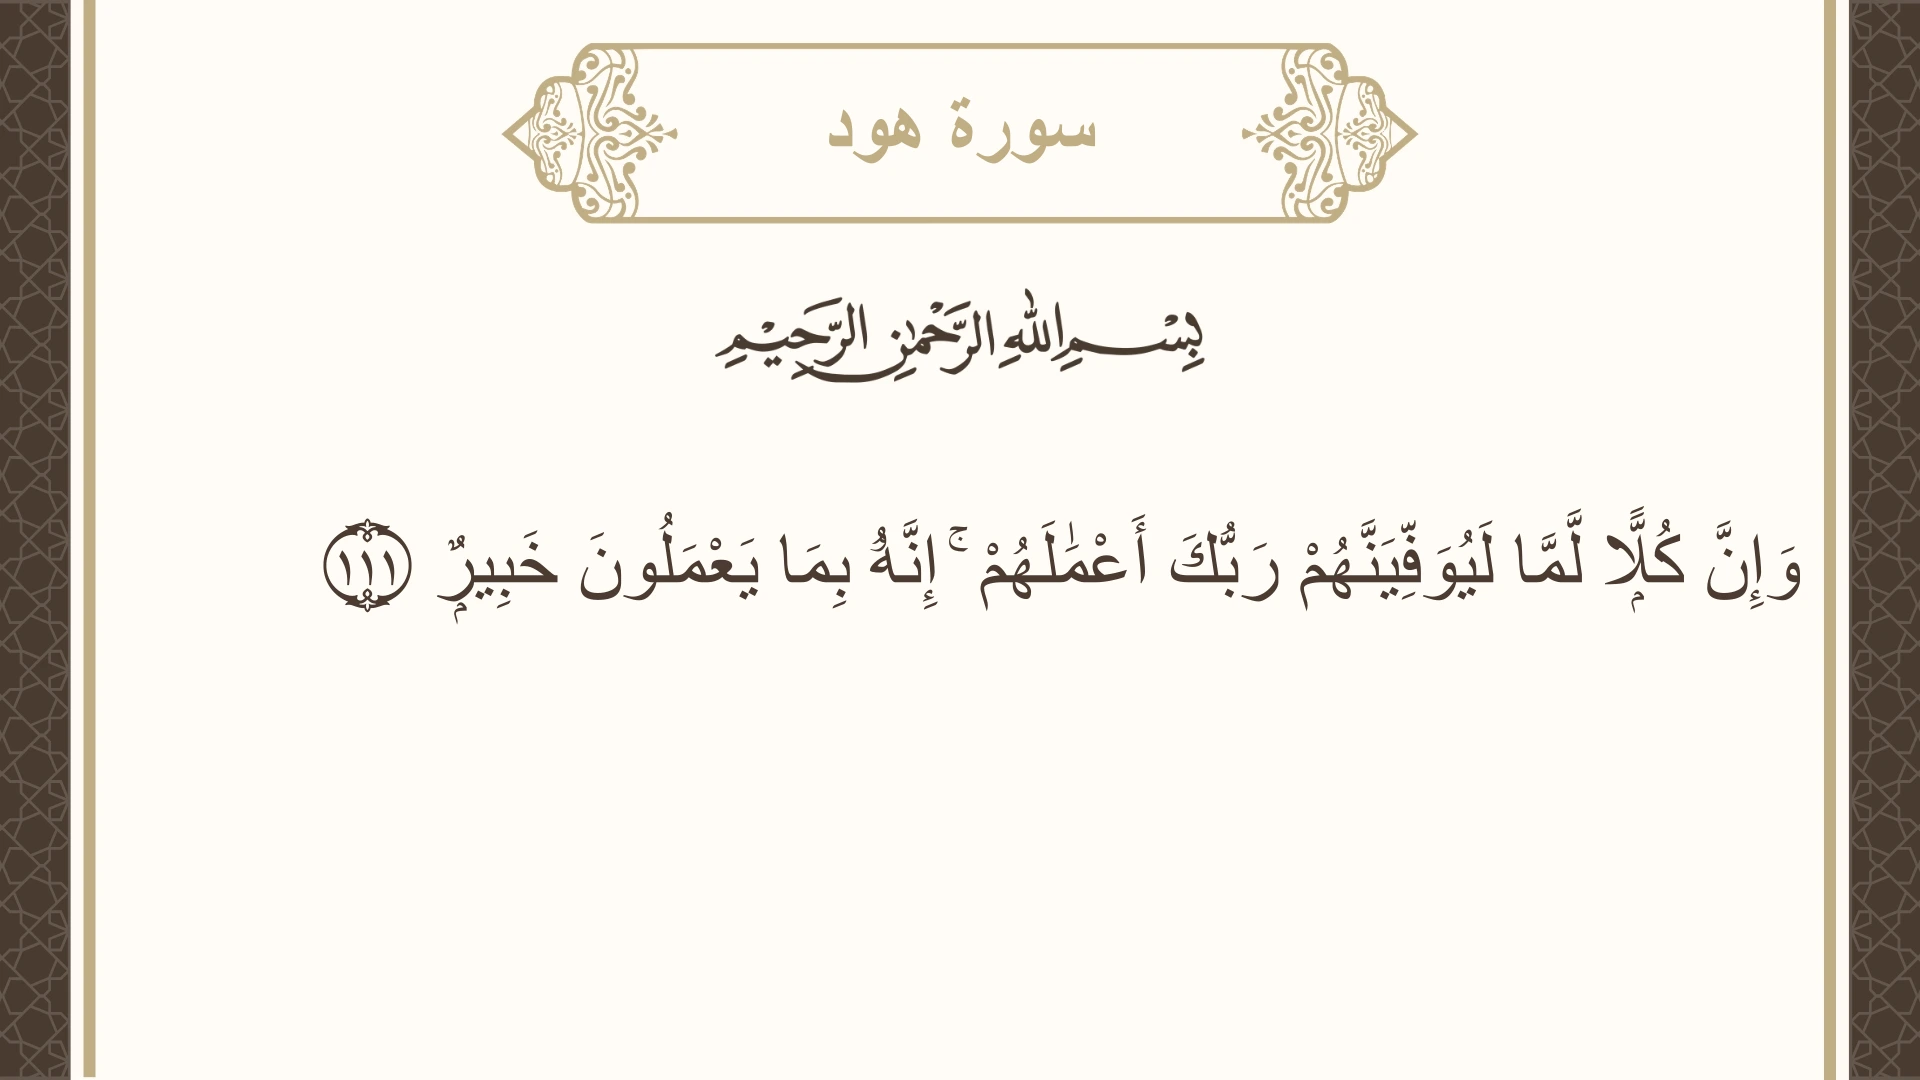 سورة هود
بِسْمِ اللهِ الرَّحْمٰنِ الرَّحِيْمِ
وَإِنَّ كُلًّاۭ لَّمَّا لَيُوَفِّيَنَّهُمْ رَبُّكَ أَعْمَٰلَهُمْ ۚ إِنَّهُۥ بِمَا يَعْمَلُونَ خَبِيرٌۭ ١١١